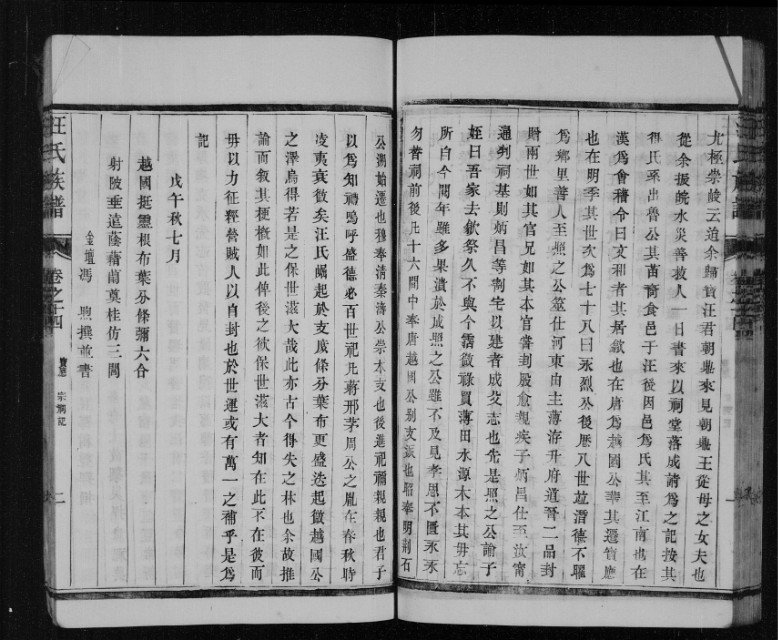 尤極崇峻云迨余歸寶汪君朝鼎來見朝鼎王從母之女夫也
從余振皖水災善救人一日書來以祠堂落成請爲之記按其
得氏系出魯公其苗裔食邑于汪後因邑爲氏其至江南也在
漢爲會稽令曰文和者其居歙也在唐爲越國公華其遷寶應
也在明季其世次爲七十八曰永烈公後歷八世竝潛德不曜
爲鄉里善人至照之公筮仕河東由主薄洊升府道晉二品封
贈兩世如其官兄如其本官嘗割股愈親疾子炳昌仕至汝甯
通判祠基則炳昌等割宅以建者成父志也先是照之公諭子
姪曰吾家去歙祭久不與今霑微祿買薄田水源木本其毋忘
所自今閱年雖多果潰於成照之公雖不及見孝思不匱永永
勿替祠前後凡十六間中奉唐越國公別支派也昭奉明荆石
公溯始遷也穆奉清秦濤公崇本支也後進祀禰親親也君子
以爲知禮嗚呼盛德必百世祀凡蔣邢茅周公之胤在春秋時
凌夷衰微矣汪氏崛起於支庶條分葉布更盛迭起微越國公
之澤烏得若是之保世滋大哉此亦古今得失之林也余故推
論而敘其梗槪如此俾後之欲保世滋大者知在此不在彼而
毋以力征經營賊人以自封也於世運或有萬一之補乎是爲
記
戊午秋七月
越國挺靈根布葉分條彌六合
射陂垂遠蔭藉蘭奠桂仿三閭
金壇馮煦撰並書
汪氏族譜
卷之十四
寶應
宗祠記
二